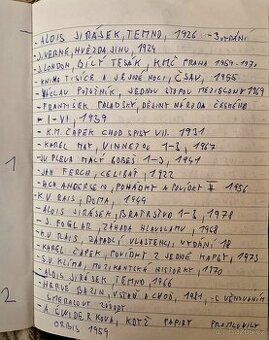 - ALOIS JIRÁSEK, TEMNO, 1926 - 3 VYDÁNÍ
- J. VERNE, HVĚZDA JIHU, 1924
- J. LONDON, BÍLÝ TESÁK, KMČ PRAHA 1969-1970
- KNIHA TISÍCE A JEDNÉ NOCI, ČSAV, 1955
- VÁCLAV POTOČNÍK, JEDNOU STOPOU MEZIGHORY 1969
- FRANTIŠEK PALACKÝ, DĚJINY NÁRODA ČESKÉHO
I - VI, 1939
- K.M. ČAPEK CHOD SPISY VII. 1931
- KAREL MAY, VINNETOU 1-3, 1967
- PLEVA MALÝ BOBEŠ 1-3, 1941
- JAN FERCH, CELIBÁT, 1922
- H.CH. ANDERSEN, POHÁDKY A POVÍDKY II 1956
- K.V. RAIS, DOMA, 1949
- ALOIS JIRÁSEK, BRATRSTVO 1-3, 1978
- J. FOGLAR, ZÁHADA HLAVOLAMU, 1968
- K.V RAIS, ZAPADLÍ VLASTENCI, VYDÁNÍ 18
- KAREL ČAPEK, POVÍDKY Z JEDNÉ KAPSY, 1973
- S.V. KLÍMA, MUZIKANTSKÉ HISTORKY, 1970
- ALOIS JIRÁSEK, TEMNO, 1966
- HERVÉ BAZIN, VSTAŇ A CHOĎ, 1981, S VĚNOVÁNÍM
- A. KDYŽ PAPÍRY PROMLUVILY
ORBIS 1959
1
2